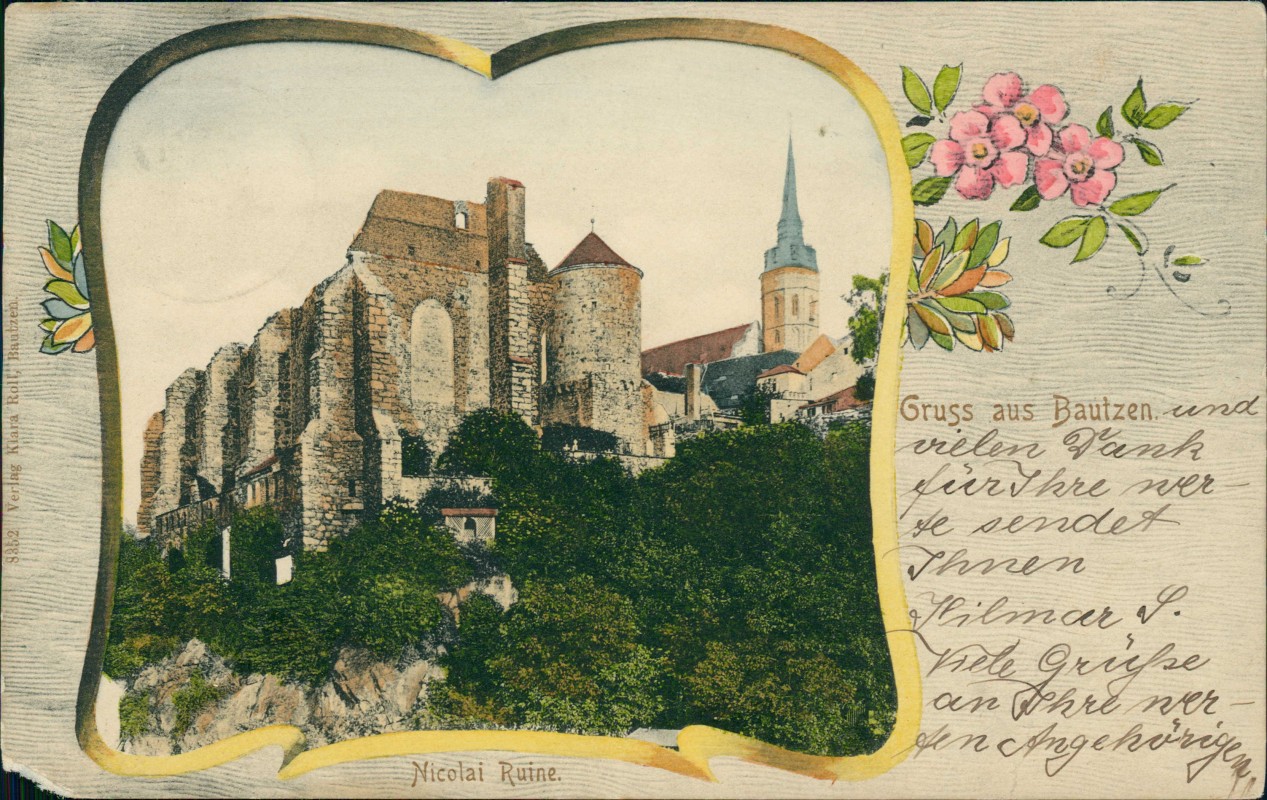 Gruss aus Bautzen. und
vielen Dank
für Ihre wer-
te sendet
Ihnen
Hilmar S.
Viele Grüße
an Ihre wer-
ten Angehörigen
Nicolai Ruine.
Verlag Klara Roll, Bautzen.